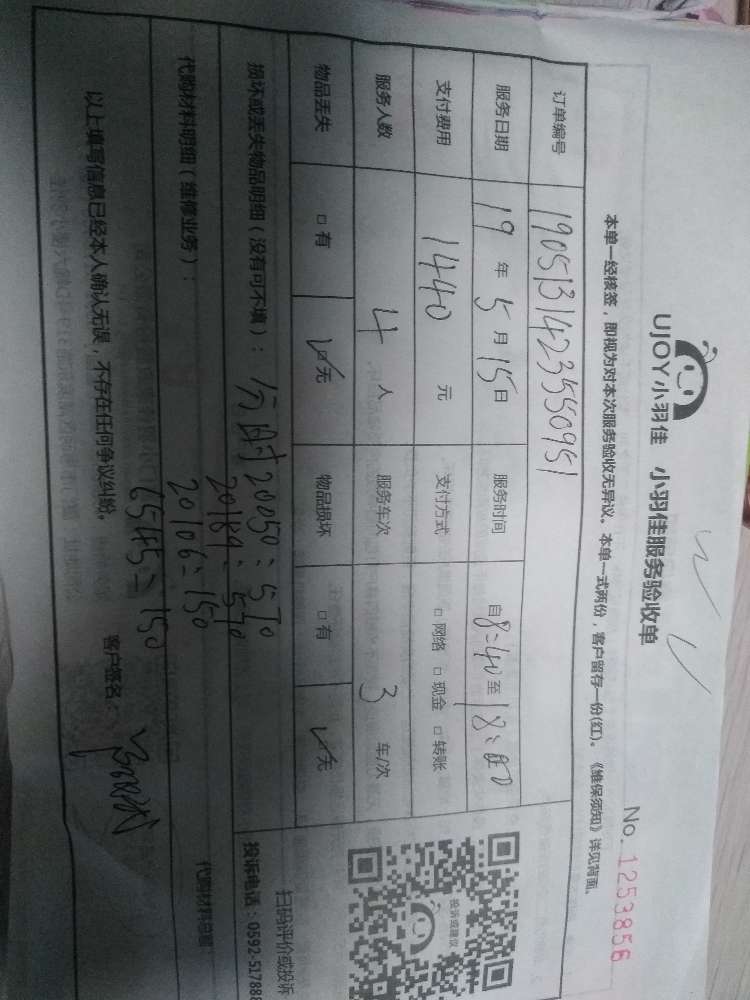 UJOY小羽佳 小羽佳服务验收单
No. 1253856
本单一经核签，即视为对本次服务验收无异议。本单一式两份，客户留存一份(红)。《维保须知》详见背面。
订单编号 190513142355509 51
服务日期 19 年 5 月 15 日 服务时间 自 8:40 至 18:
支付费用 1440 元 支付方式 □ 网络 □ 现金 □ 转账
服务人数 4 人 服务车次 3 车/次
物品丢失 □ 有 ☑ 无 物品损坏 □ 有 ☑ 无
损坏或丢失物品明细（没有可不填）：
20050：570
20189：570
代购材料明细（维修业务）：
20106：150
6545：150
代购材料总额：
以上填写信息已经本人确认无误，不存在任何争议纠纷。
客户签名：
投诉或建议
扫码评价或投诉
投诉电话：0592-517888